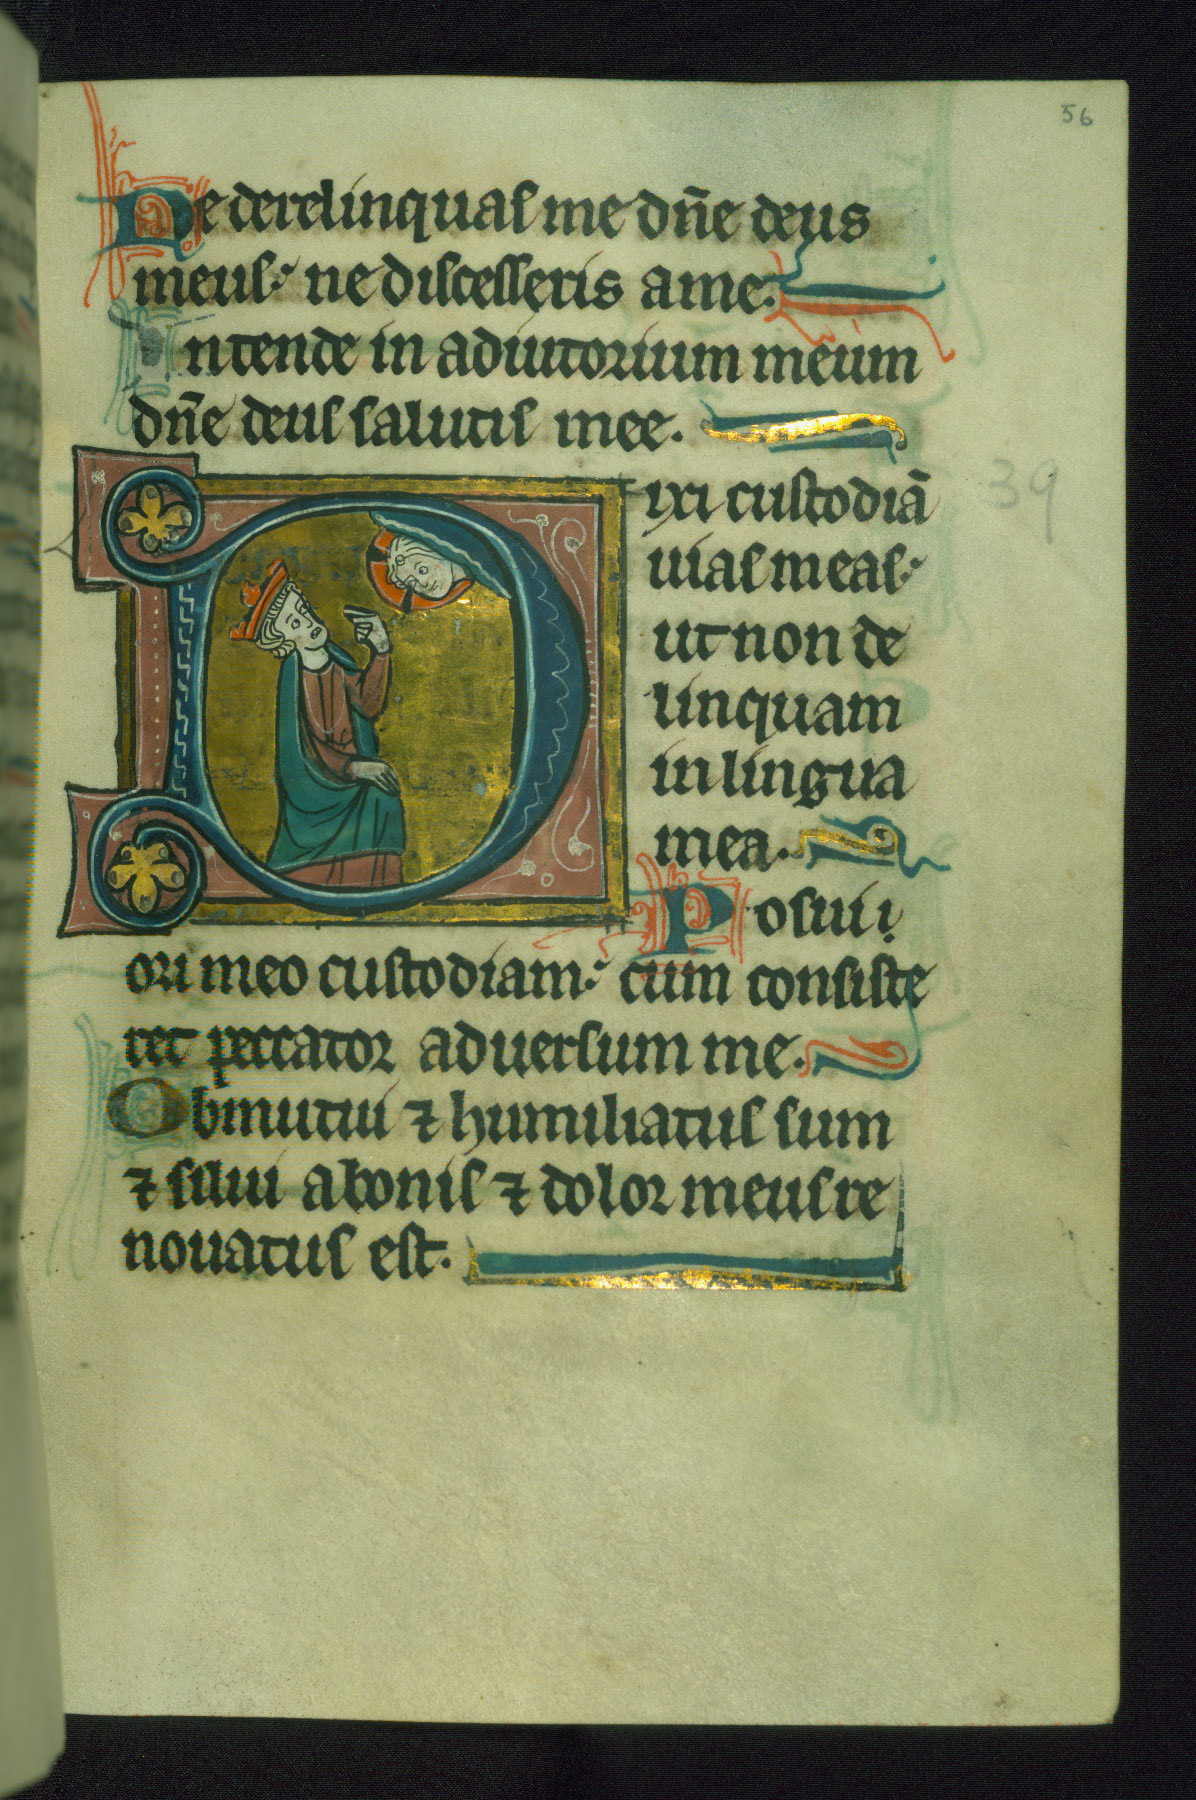 56
Ne derelinquas me dñe deus
meus: ne discesseris a me.
Intende in adiutorium meum
dñe deus salutis mee.
Dixi custodiā
39
uias meas:
ut non de
linquam
in lingua
mea.
Posui
ori meo custodiam: cum consiste
ret peccator aduersum me.
Obmutui ⁊ humiliatus sum
⁊ silui a bonis ⁊ dolor meus re
nouatus est.